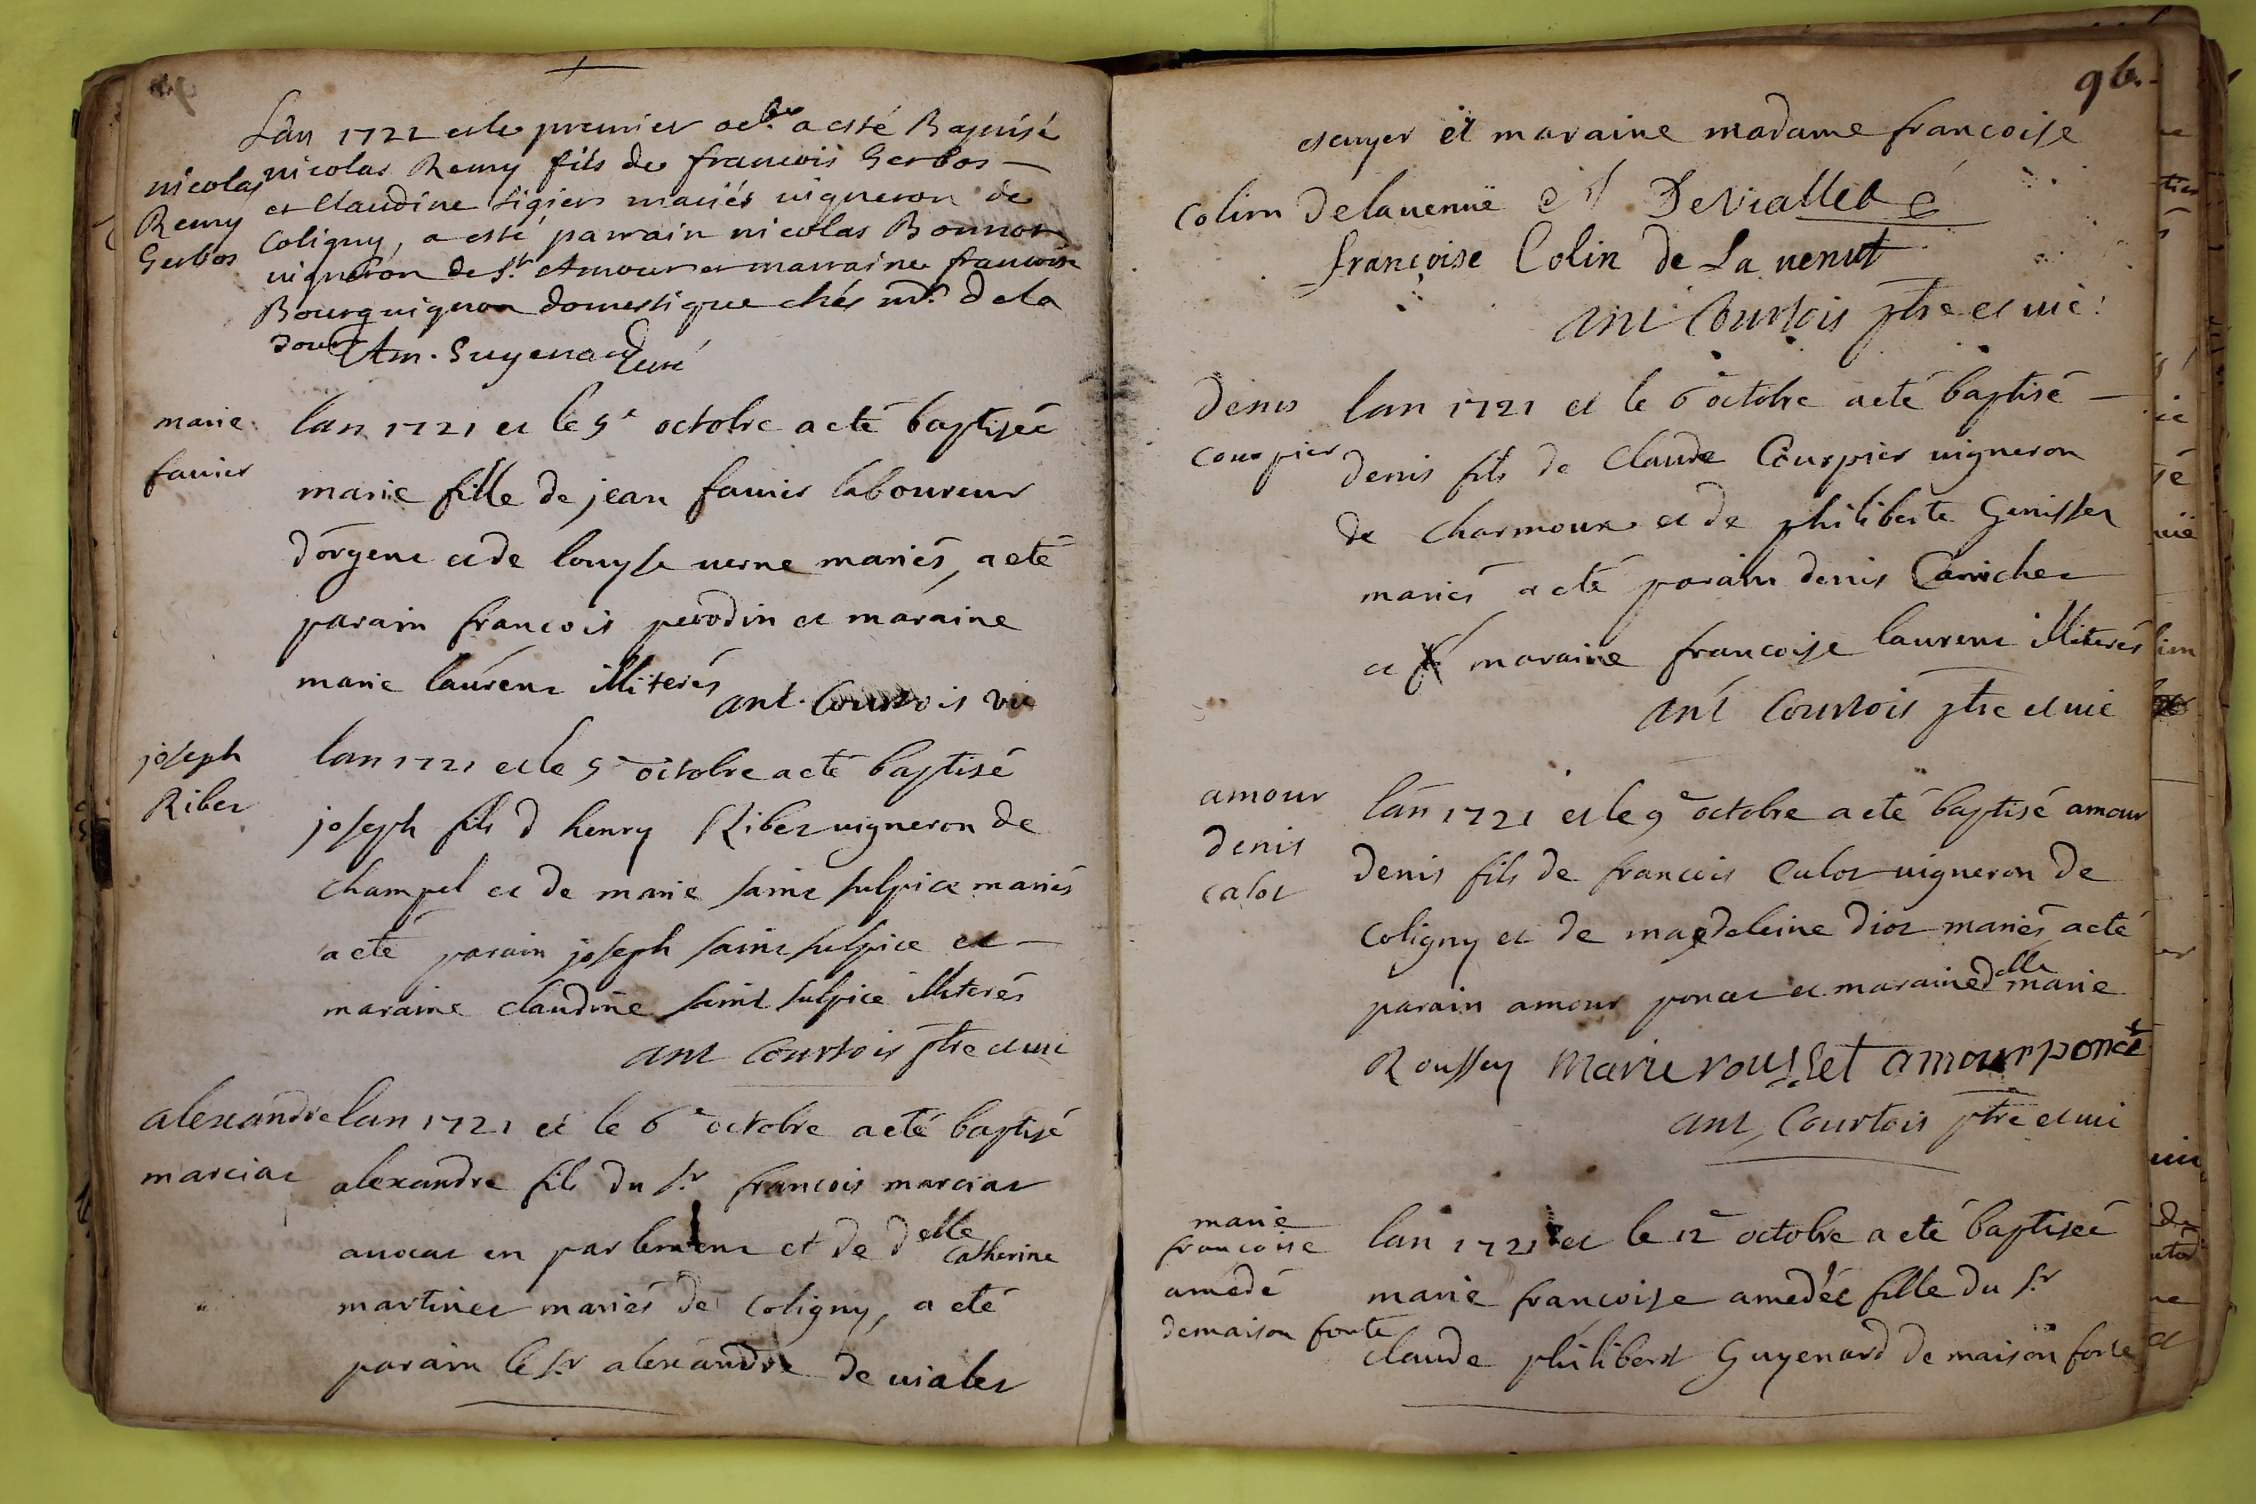 Lan 1721 et le premier oct.bre a esté Baptisé
nicolas nicolas Remy fils de francois Gerbos
Remy et Claudine Ligier mariés vigneron de
Gerbos Coligny, a esté parrain nicolas Bonnor
vigneron de St. Amour et marraine francoise
Bourguignon domestique chés mr. dela
dour Am. Guyenard Curé
marie lan 1721 et le 5e octobre a eté baptiseé
fauier marie fille de jean fauier laboureur
dórgent et de louyse uerne mariés, a eté
parain francois perodin et maraine
marie laurent illiterés ant. Courtois vic
joseph lan 1721 et le 5e octobre a eté baptisé
Ribet joseph fils d henry Ribet uigneron de
champel et de marie saint sulpice mariés
a eté parain joseph saint sulpice et
maraine claudine saint sulpice illiterés
ant Courtois ptre et uic
alexandre lan 1721 et le 6e octobre a eté baptisé
marciat alexandre fils du sr francois marciat
auocat en parlement et de delle Catherine
martinet mariés de Coligny, a eté
parain le sr alexandre de uialet
96.
escuyer et maraine madame francoise
Colin Delauenuë DeVialleta
françoise Colin de La uenut
ant Courtois ptre et uic
Denis lan 1721 et le 6e octobre a eté baptisé
Courpier denis fils de Claude Courpier uigneron
de Charmoux et de philiberte Genisset
mariés a eté parain denis Carrichet
et maraine francoise laurent illiterés
ant Courtois ptre et uic
amour lan 1721 et le 9e octobre a eté baptisé amour
denis denis fils de francois Calot uigneron de
calot Coligny et de magdeleine diot mariés a eté
parain amour poncet et maraine delle marie
Roussey marie rousset amour poncet
ant Courtois ptre et uic
marie francoise lan 1721 et le 12e octobre a eté baptiseé
amedé marie francoise amedéé fille du sr
demaison forte claude philibert Guyenard de maison forte